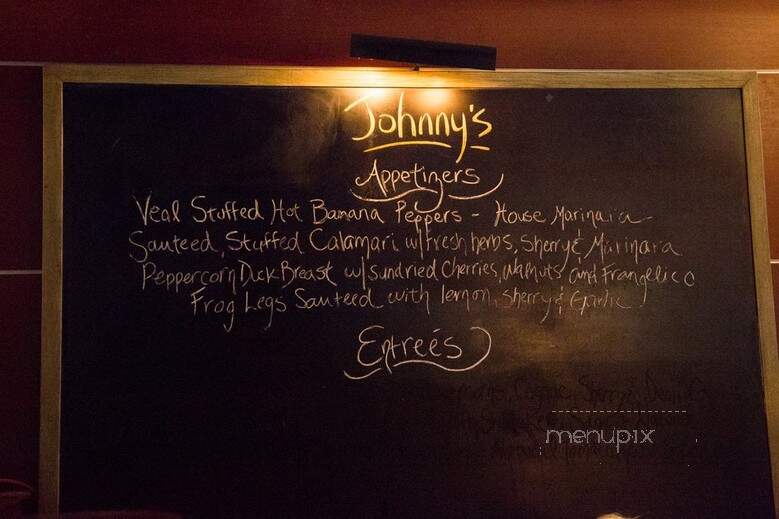 Johnny's
Appetizers
Veal Stuffed Hot Banana Peppers - House Marinara
Sauteed, Stuffed Calamari w/fresh herbs, Sherry & Marinara
Peppercorn Duck Breast w/sundried Cherries, walnuts and Frangelico
Frog Legs Sauteed with lemon, Sherry & Garlic
Entreés
menupix